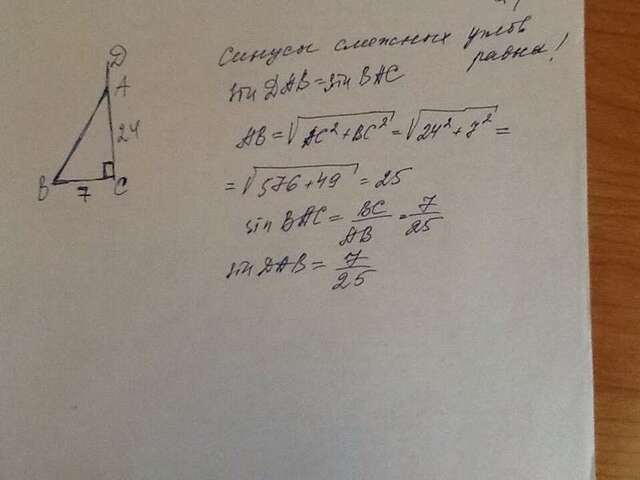 Синусы смежных углов
равны!
sin DAB = sin BAC
AB = √AC² + BC² = √24² + 7² =
= √576 + 49 = 25
sin BAC = BC/AB = 7/25
sin DAB = 7/25
D
A
24
B
7
C